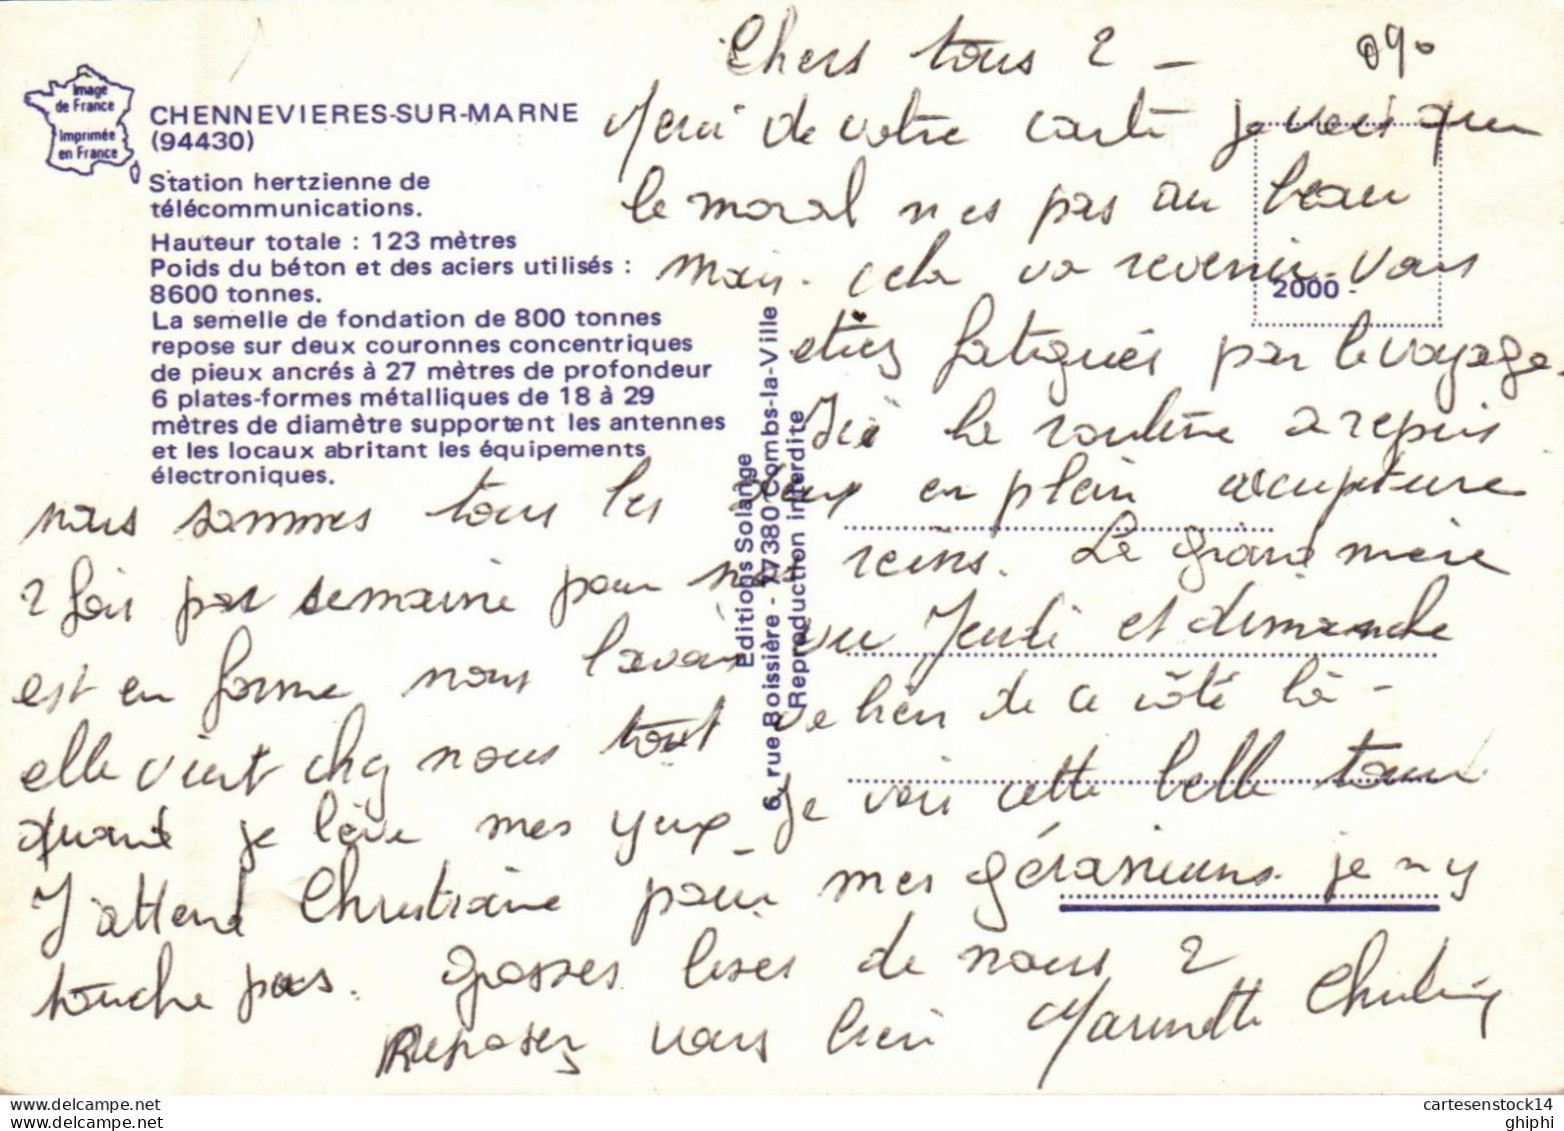 Chers tous 2 - 090
Image
de France
Imprimée
en France
CHENNEVIERES-SUR-MARNE
(94430)
Station hertzienne de
télécommunications.
Hauteur totale : 123 mètres
Poids du béton et des aciers utilisés :
8600 tonnes.
La semelle de fondation de 800 tonnes
repose sur deux couronnes concentriques
de pieux ancrés à 27 mètres de profondeur
6 plates-formes métalliques de 18 à 29
mètres de diamètre supportent les antennes
et les locaux abritant les équipements
électroniques.
Editions Solange
6, rue Boissière - 77380 Combs-la-Ville
Reproduction interdite
2000 -
Merci de votre carte je vois que
le moral n es pas au beau
mais cela va revenir. Vous
etiez fatigués par le voyage.
Ici la routine a repris
nous sommes tous les deux en plein acupuncture
2 fois par semaine pour nos reins. La grand mère
est en forme nous l'avons vu Jeudi et dimanche
elle vient chez nous tout va bien de ce côté là -
quand je lève mes yeux je vois cette belle tour
J'attend Christiane pour mes géraniums. je n y
touche pas. grosses bises de nous 2
Reposez vous bien Marinette